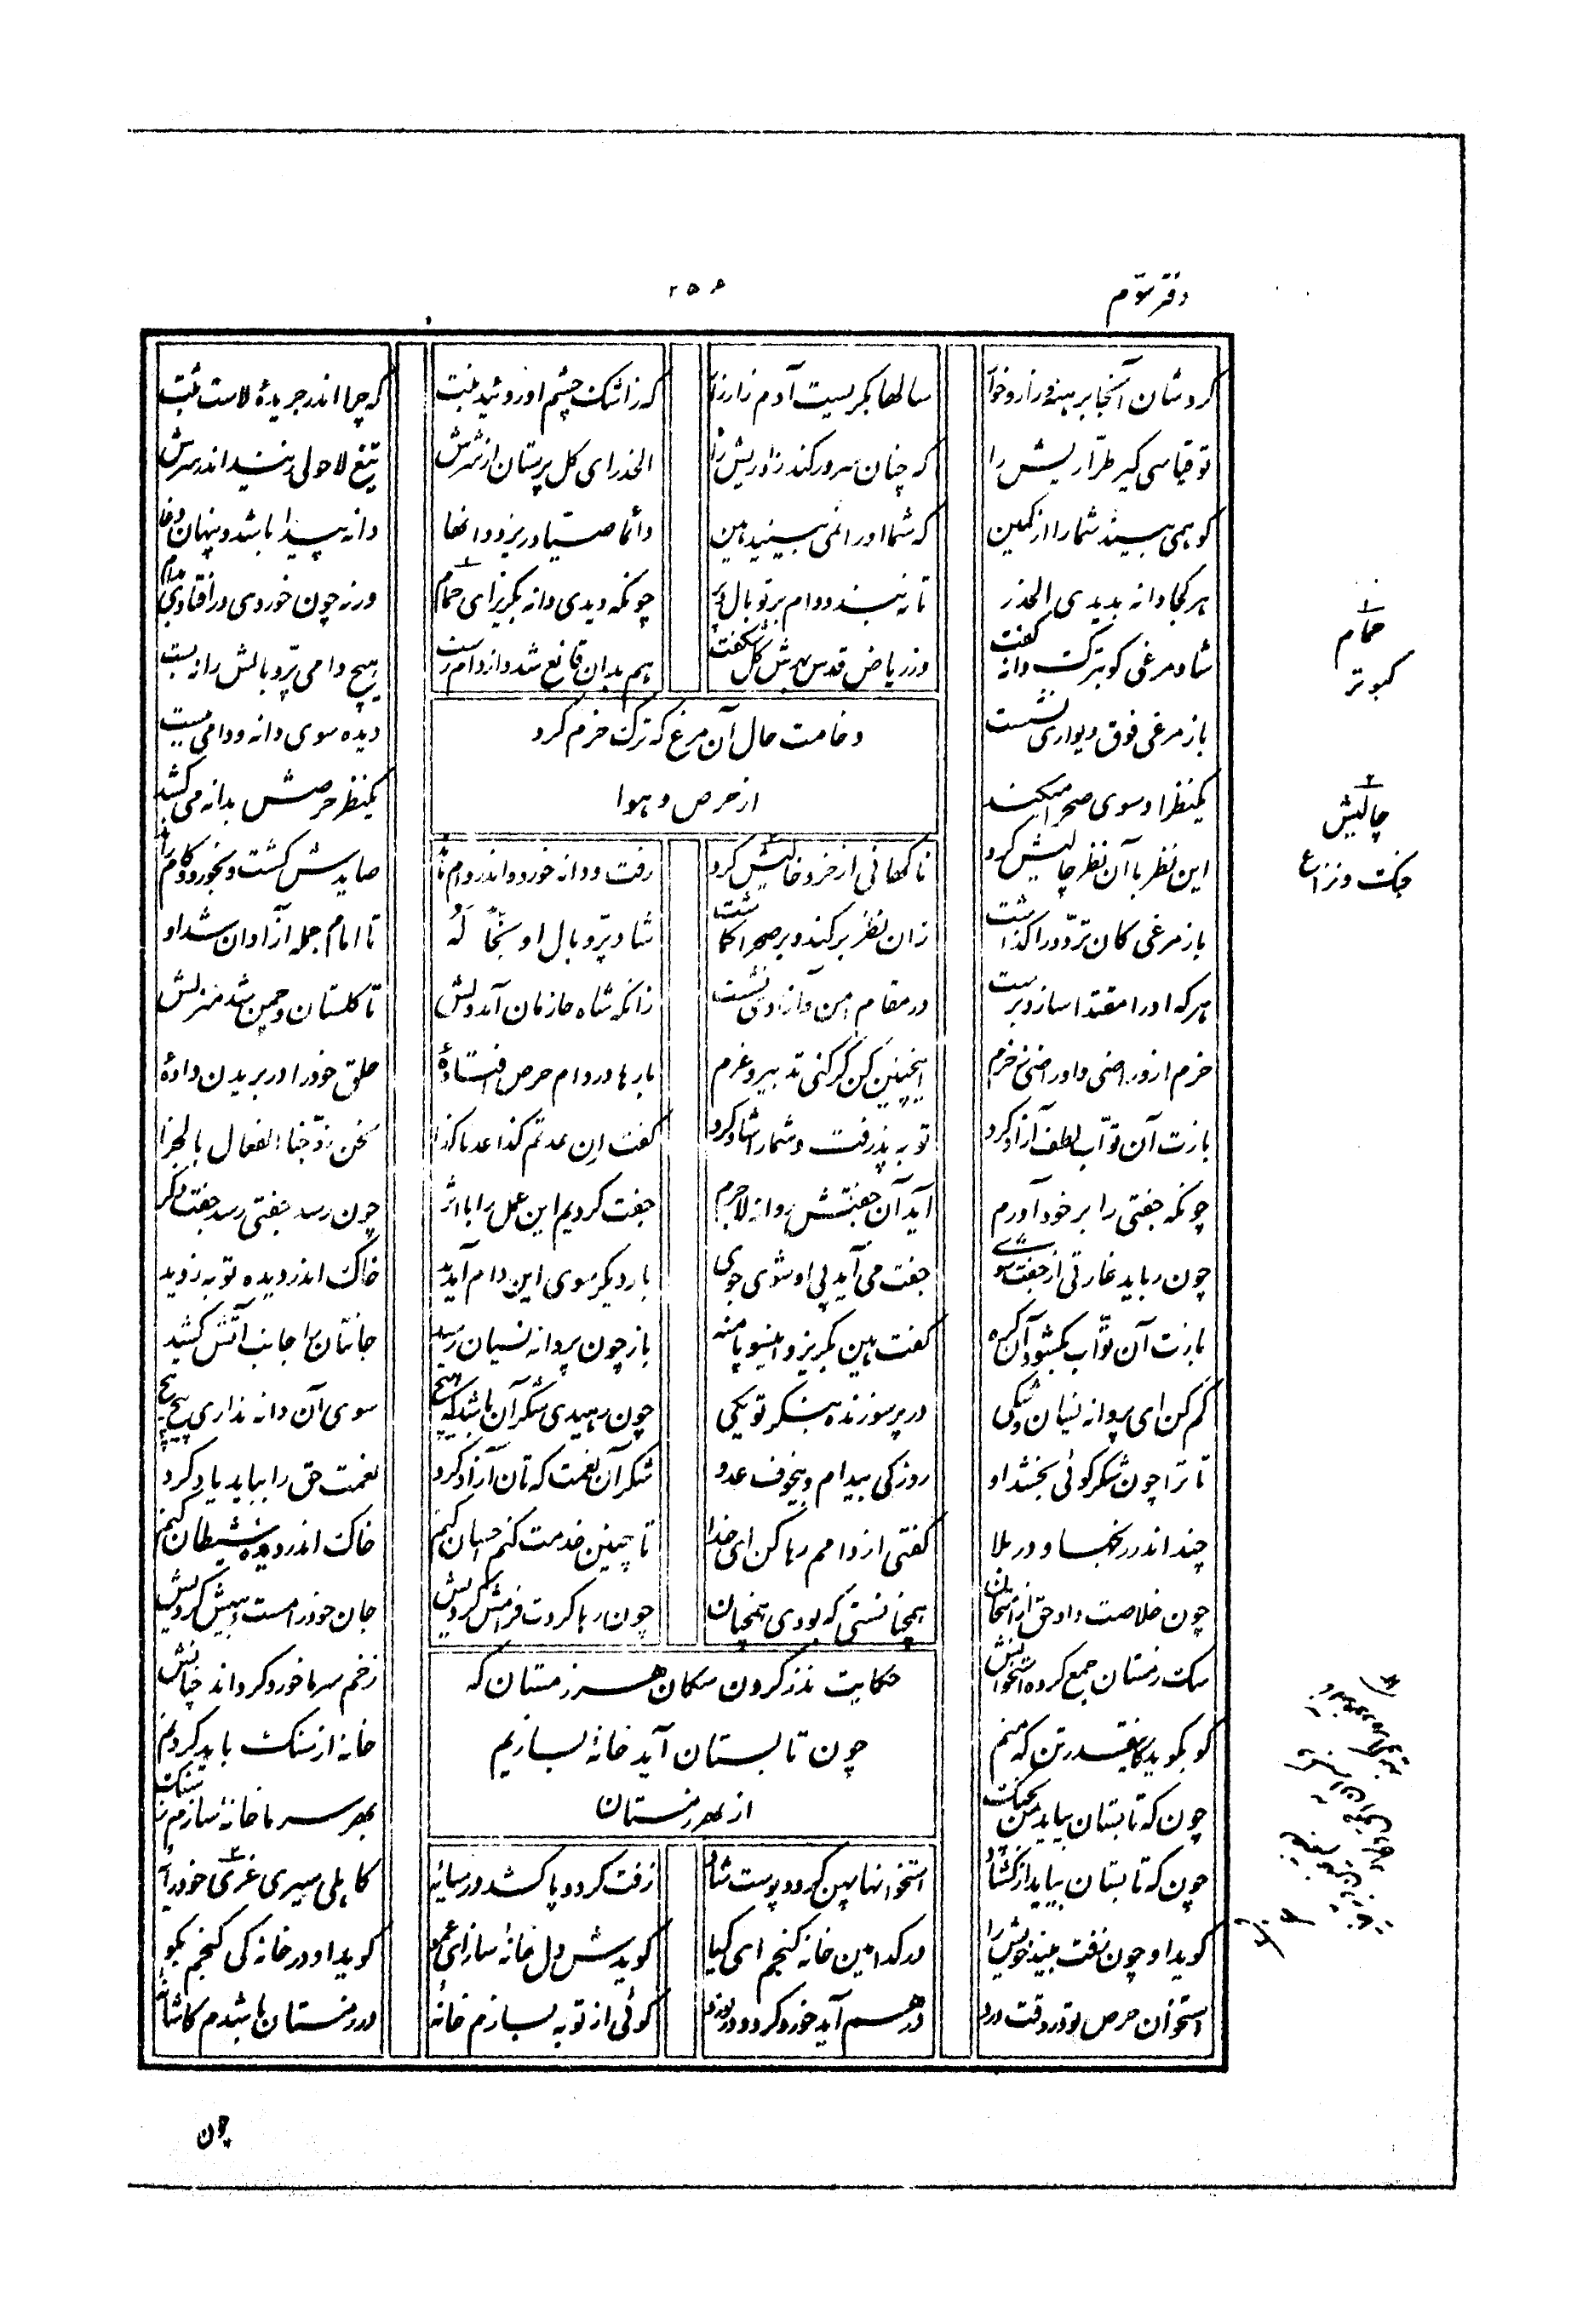 دفتر سوّم
۲۵۶
کردشان آنجا برهنه و زار و خوار سالها بگریست آدم زار زار که ز اشک چشم او روئید نبت که چرا اندر جریدهٔ لاست ثبت
تو قیاسی گیر طرّاریش را که چنان سرور کند زو ریش را الحذر ای گل پرستان از شرش تیغ لاحولی زنید اندر سرش
کو همی بیند شما را از کمین که شما او را نمی‌بینید هین دائما صیّاد ریزد دانها دانه پیدا باشد و پنهان دغا
هر کجا دانه بدیدی الحذر تا نبندد دام بر تو بال و پر چونکه دیدی دانه بگریز ای حمام ورنه چون خوردی در افتادی بدام
شاد مرغی کو بترک دانه گفت وز ریاض قدس بهرش گل شکفت هم بدان قانع شد و از دام رست هیچ دامی پرّ و بالش را نه بست
وخامت حال آن مرغ که ترک حزم کرد
از حرص و هوا
باز مرغی فوق دیواری نشست دیده سوی دانه و دامی ببست
یکنظر او سوی صحرا میکند یکنظر حرصش بدانه می‌کشد
این نظر با آن نظر چالیش کرد ناگهانی از خرد خالیش کرد رفت و دانه خورد و اندر دام ماند صایدش کشت و بخورد و کام راند
باز مرغی کان تردّد را گذاشت زان نظر برکند و بر صحرا گماشت شاد پرّ و بال او بخّاً لَهُ تا امام جمله آزادان شد او
هر که او را مقتدا سازد برست در مقام امن و آزادی نشست زانکه شاه حازمان آمد دلش تا گلستان و چمن شد منزلش
حزم ازو راضی و او راضی ز حزم اینچنین کن گر کنی تدبیر و عزم بارها در دام حرص افتادهٔ حلق خود را در بریدن دادهٔ
بازت آن توّاب لطف آزاد کرد توبه پذرفت و شما را شاد کرد گفت ان عدتم کذا عدنا کذا نحن زوّجنا الفعال بالجزا
چونکه جفتی را بر خود آورم آید آن جفتش روانه لاجرم جفت کردیم این عمل را با اثر چون رسد جفتی رسد جفت دگر
چون رباید غارتی از جفت شوی جفت می‌آید پی او شوی جوی بار دیگر سوی این دام آمدید خاک اندر دیدهٔ توبه زدید
بازت آن توّاب بگشود آن گره گفت هین بگریز و اینسو پا منه باز چون پروانهٔ نسیان رسید جانتان را جانب آتش کشید
کم کن ای پروانه نسیان و شکی در پر سوزنده بنگر تو یکی چون رهیدی شکر آن باشد که هیچ سوی آن دانه نداری پیچ پیچ
تا ترا چون شکر گوئی بخشد او روزکی بیدام و بیخوف عدو شکر آن نعمت که تان آزاد کرد نعمت حق را بباید یاد کرد
چند اندر رنجها و در بلا گفتی از دامم رها کن ای خدا تا چنین خدمت کنم احسان کنم خاک اندر دیدهٔ شیطان کنم
چون خلاصت داد حق از امتحان همچنانستی که بودی همچنان چون رها کردت فرامش کردیش جان خود را مست و بیهش کردیش
حکایت نذر کردن سگان هر زمستان که
چون تابستان آید خانهٔ بسازیم
از بهر زمستان
سگ زمستان جمع گردد استخوانش زخم سرما خورد گرداند چنانش
کو بگوید کاینقدر تن که منم خانهٔ از سنگ باید کردنم
چون که تابستان بیاید من بچنگ بهر سرما خانهٔ سازم ز سنگ
چون که تابستان بیاید از گشاد استخوانها پهن گردد پوست شاد زفت گردد پا کشد در سایهٔ کاهلی سیری غری خودرایهٔ
گوید او چون زفت بیند خویش را در کدامین خانه گنجم ای کیا گویدش دل خانهٔ ساز ای عمو گوید او در خانه کی گنجم بگو
استخوان حرص تو در وقت درد درهم آید خورد گردد در نورد گوئی از توبه بسازم خانهٔ در زمستان باشدم کاشانهٔ
۱
حمام
کبوتر
۲
چالیش
جنگ و نزاع
چون